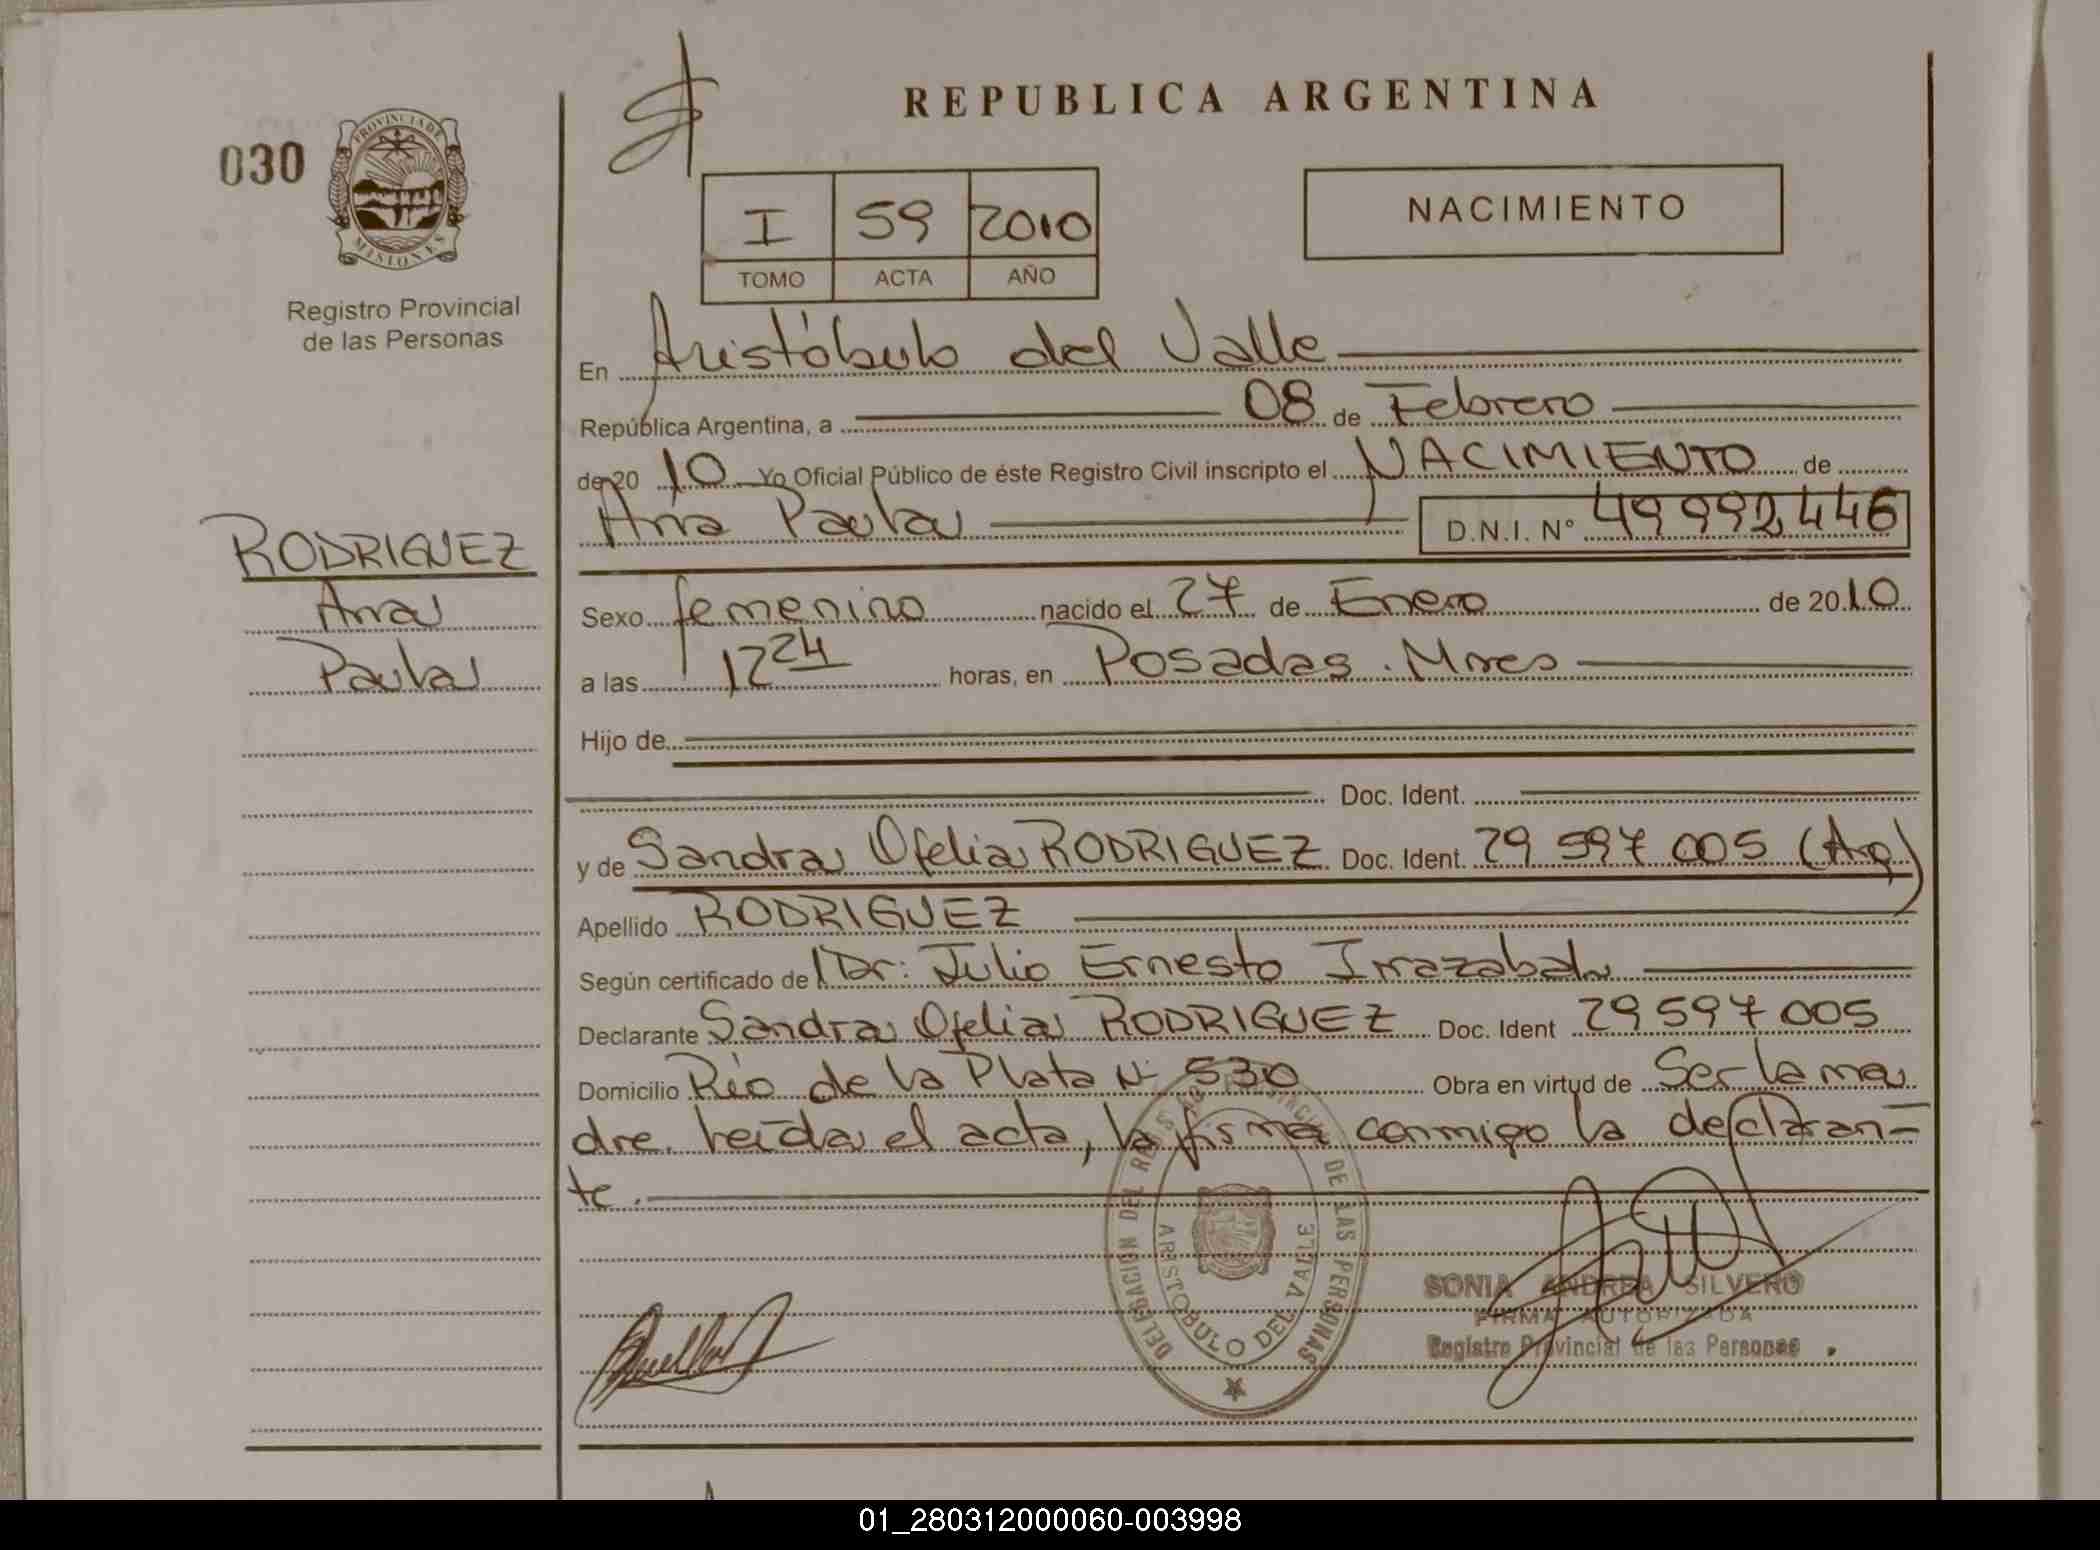 030
PROVINCIA DE
MISIONES
Registro Provincial
de las Personas
RODRIGUEZ
Ana
Paula
REPUBLICA ARGENTINA
I 59 2010
TOMO ACTA AÑO
NACIMIENTO
En Aristóbulo del Valle
República Argentina, a 08 de Febrero
de 20 10 Yo Oficial Público de éste Registro Civil inscripto el NACIMIENTO de
Ana Paula D.N.I. N° 49 992 446
Sexo femenino nacido el 27 de Enero de 20 10
a las 12 24 horas, en Posadas. Mnes
Hijo de
Doc. Ident.
y de Sandra Ofelia RODRIGUEZ Doc. Ident. 29 597 005 (Arg)
Apellido RODRIGUEZ
Según certificado de Dr: Julio Ernesto Irrazabal
Declarante Sandra Ofelia RODRIGUEZ Doc. Ident 29 597 005
Domicilio Río de la Plata N° 530 Obra en virtud de Ser la ma
dre. Leída el acta, la firma conmigo la declaran-
te.
DELEGACION DEL REGISTRO PROVINCIAL DE LAS PERSONAS
ARISTOBULO DEL VALLE
SONIA ANDREA SILVERO
FIRMA AUTORIZADA
Registro Provincial de las Personas
01_280312000060-003998